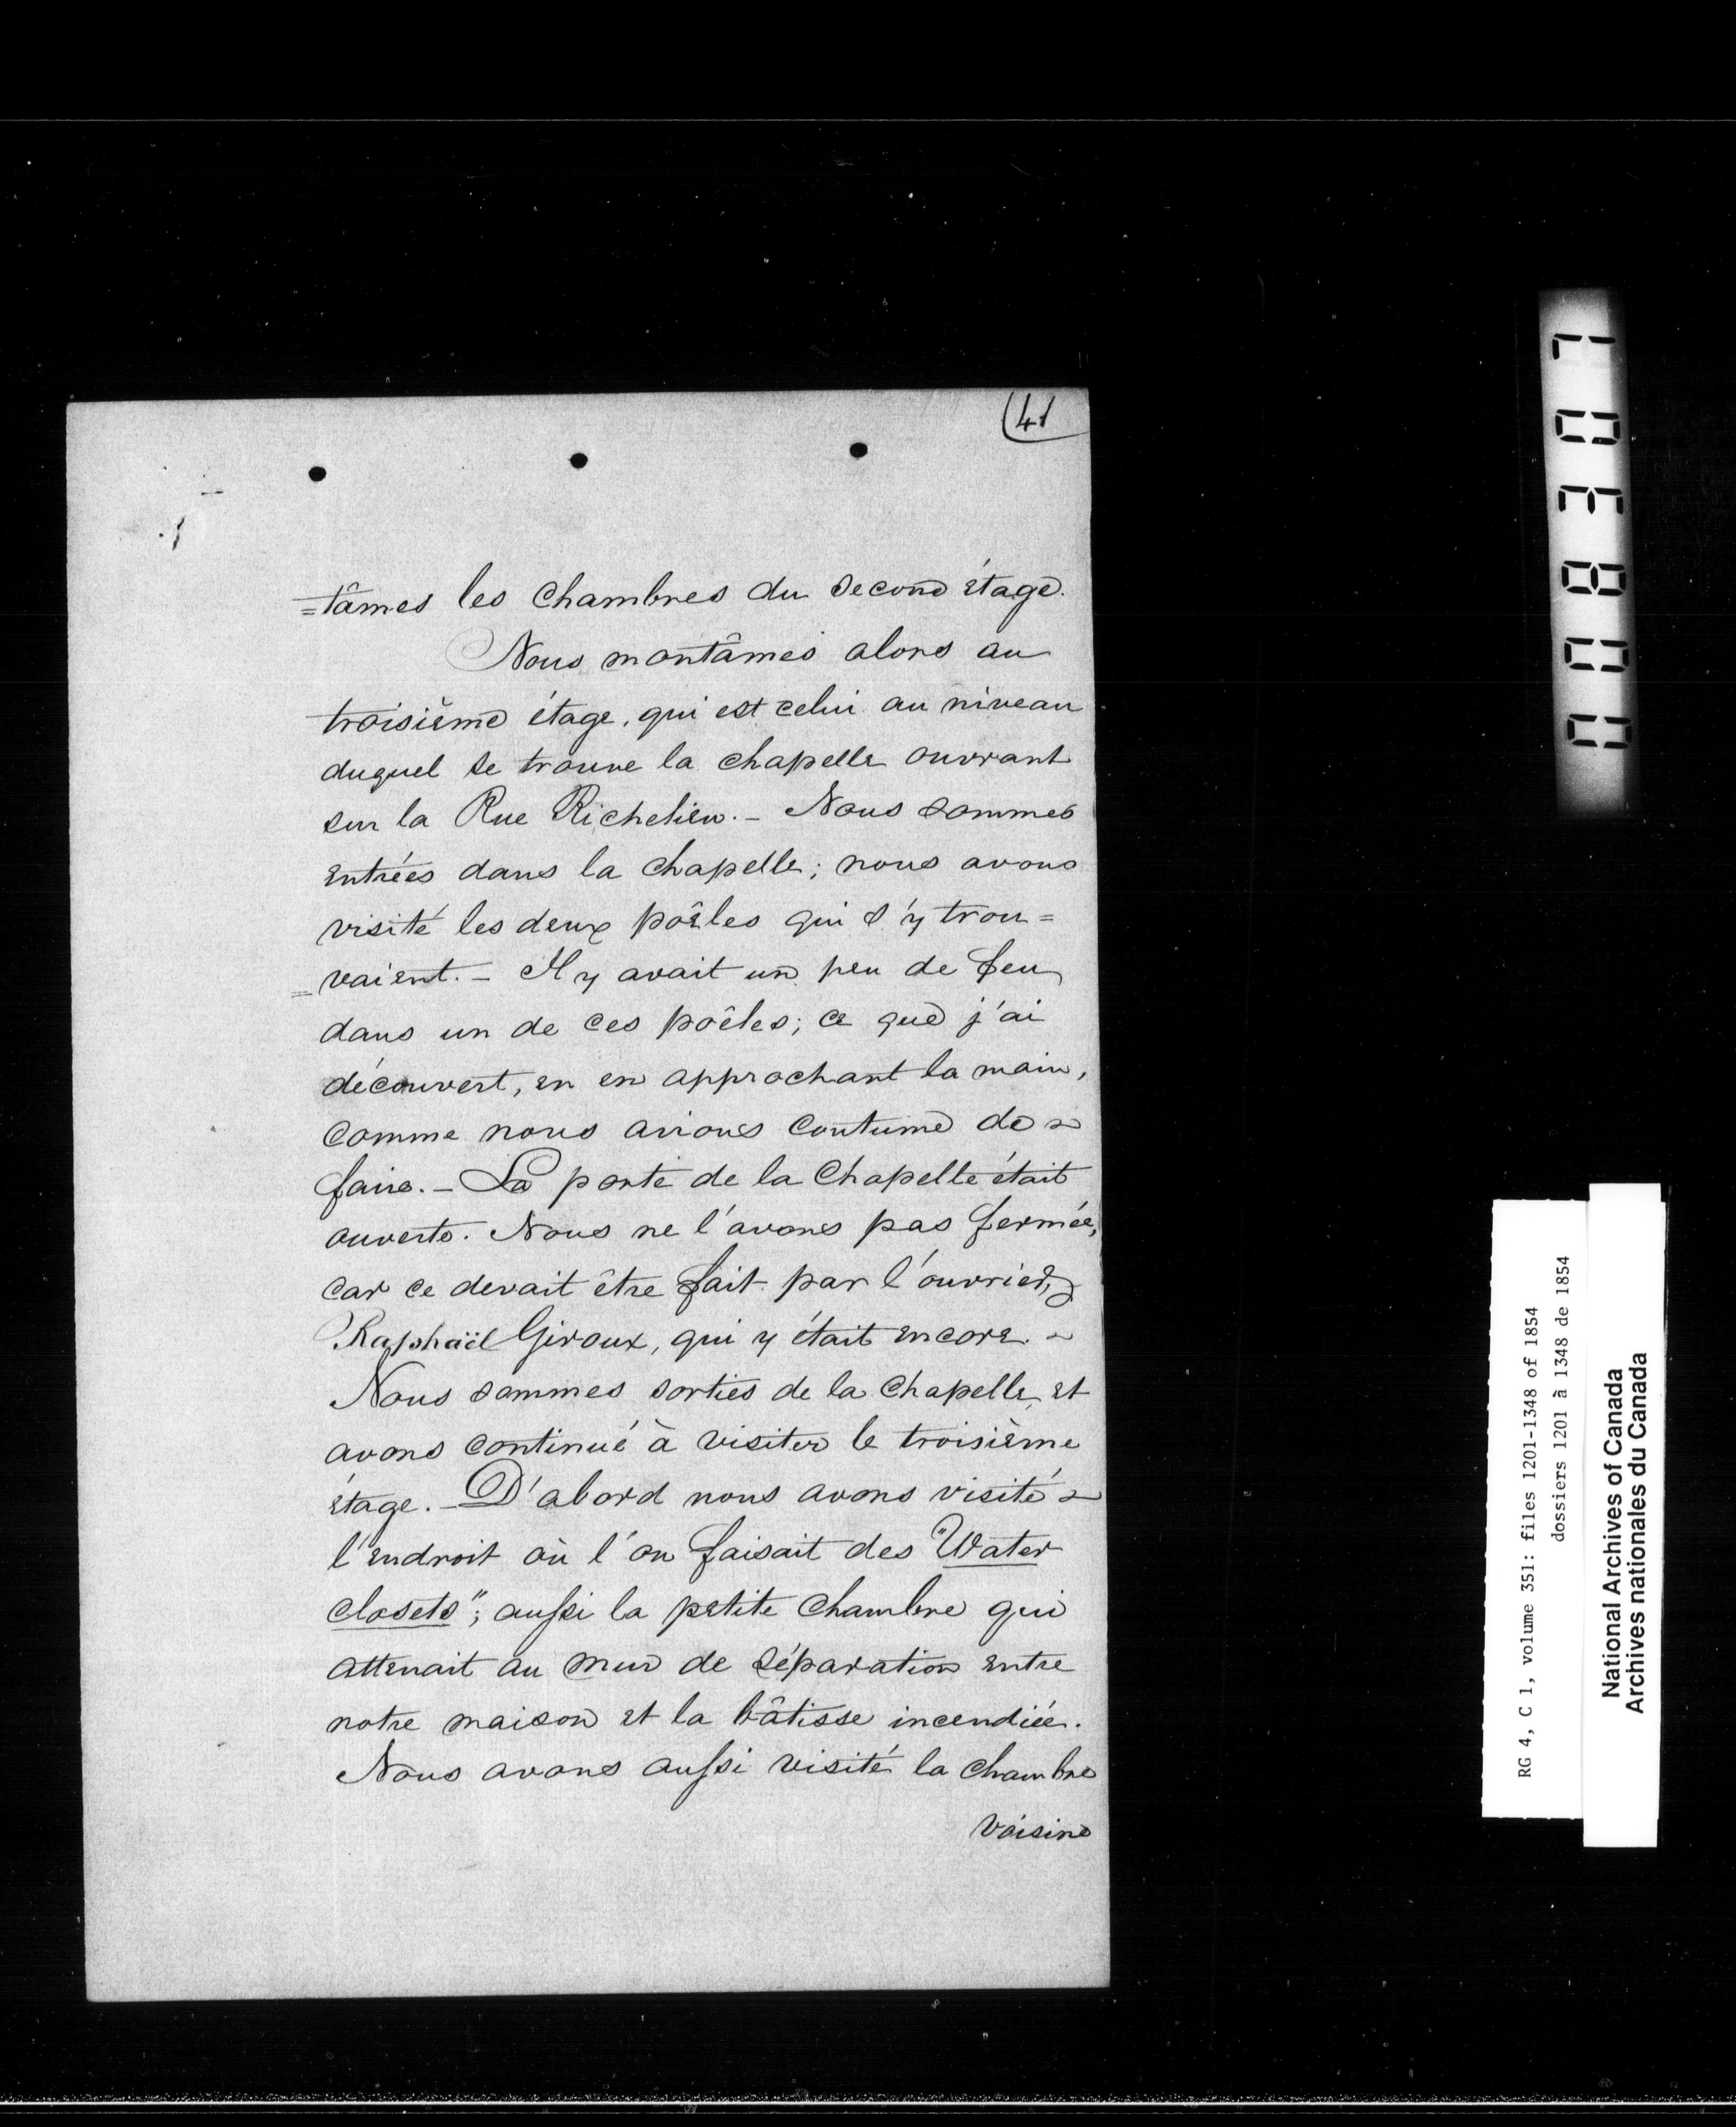 41
=tâmes les chambres du second étage.
Nous montâmes alors au
troisième étage, qui est celui au niveau
duquel se trouve la chapelle ouvrant
sur la Rue Richelieu. – Nous sommes
entrées dans la chapelle; nous avons
visité les deux poêles qui s'y trou=
=vaient. – Il y avait un peu de feu
dans un de ces poêles; ce que j'ai
découvert, en en approchant la main,
comme nous avions coutume de
faire. – La porte de la Chapelle était
ouverte. Nous ne l'avons pas fermée,
car ce devait être fait par l'ouvrier,
Raphaël Giroux, qui y était encore.
Nous sommes sorties de la Chapelle, et
avons continué à visiter le troisième
étage. – D'abord nous avons visité
l'endroit où l'on faisait des "Water
closets"; aussi la petite chambre qui
attenait au mur de séparation entre
notre maison et la bâtisse incendiée.
Nous avons aussi visité la chambre
voisine
RG 4, C 1, volume 351: files 1201-1348 of 1854
dossiers 1201 à 1348 de 1854
National Archives of Canada
Archives nationales du Canada